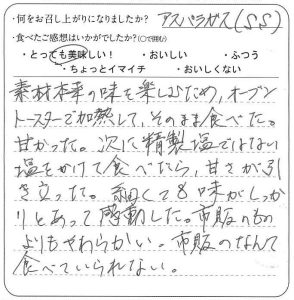 ・何をお召し上がりになりましたか? アスパラガス(SS)
・食べたご感想はいかがでしたか?(○で囲む)
・とっても美味しい! ・おいしい ・ふつう
・ちょっとイマイチ ・おいしくない
素材本来の味を楽しむため,オーブン
トースターで加熱して,そのまま食べた。
甘かった。次に精製塩ではない
塩をかけて食べたら,甘さが引
き立った。細くても味がしっか
りとあって感動した。市販のもの
よりもやわらかい。市販のなんて
食べていられない。